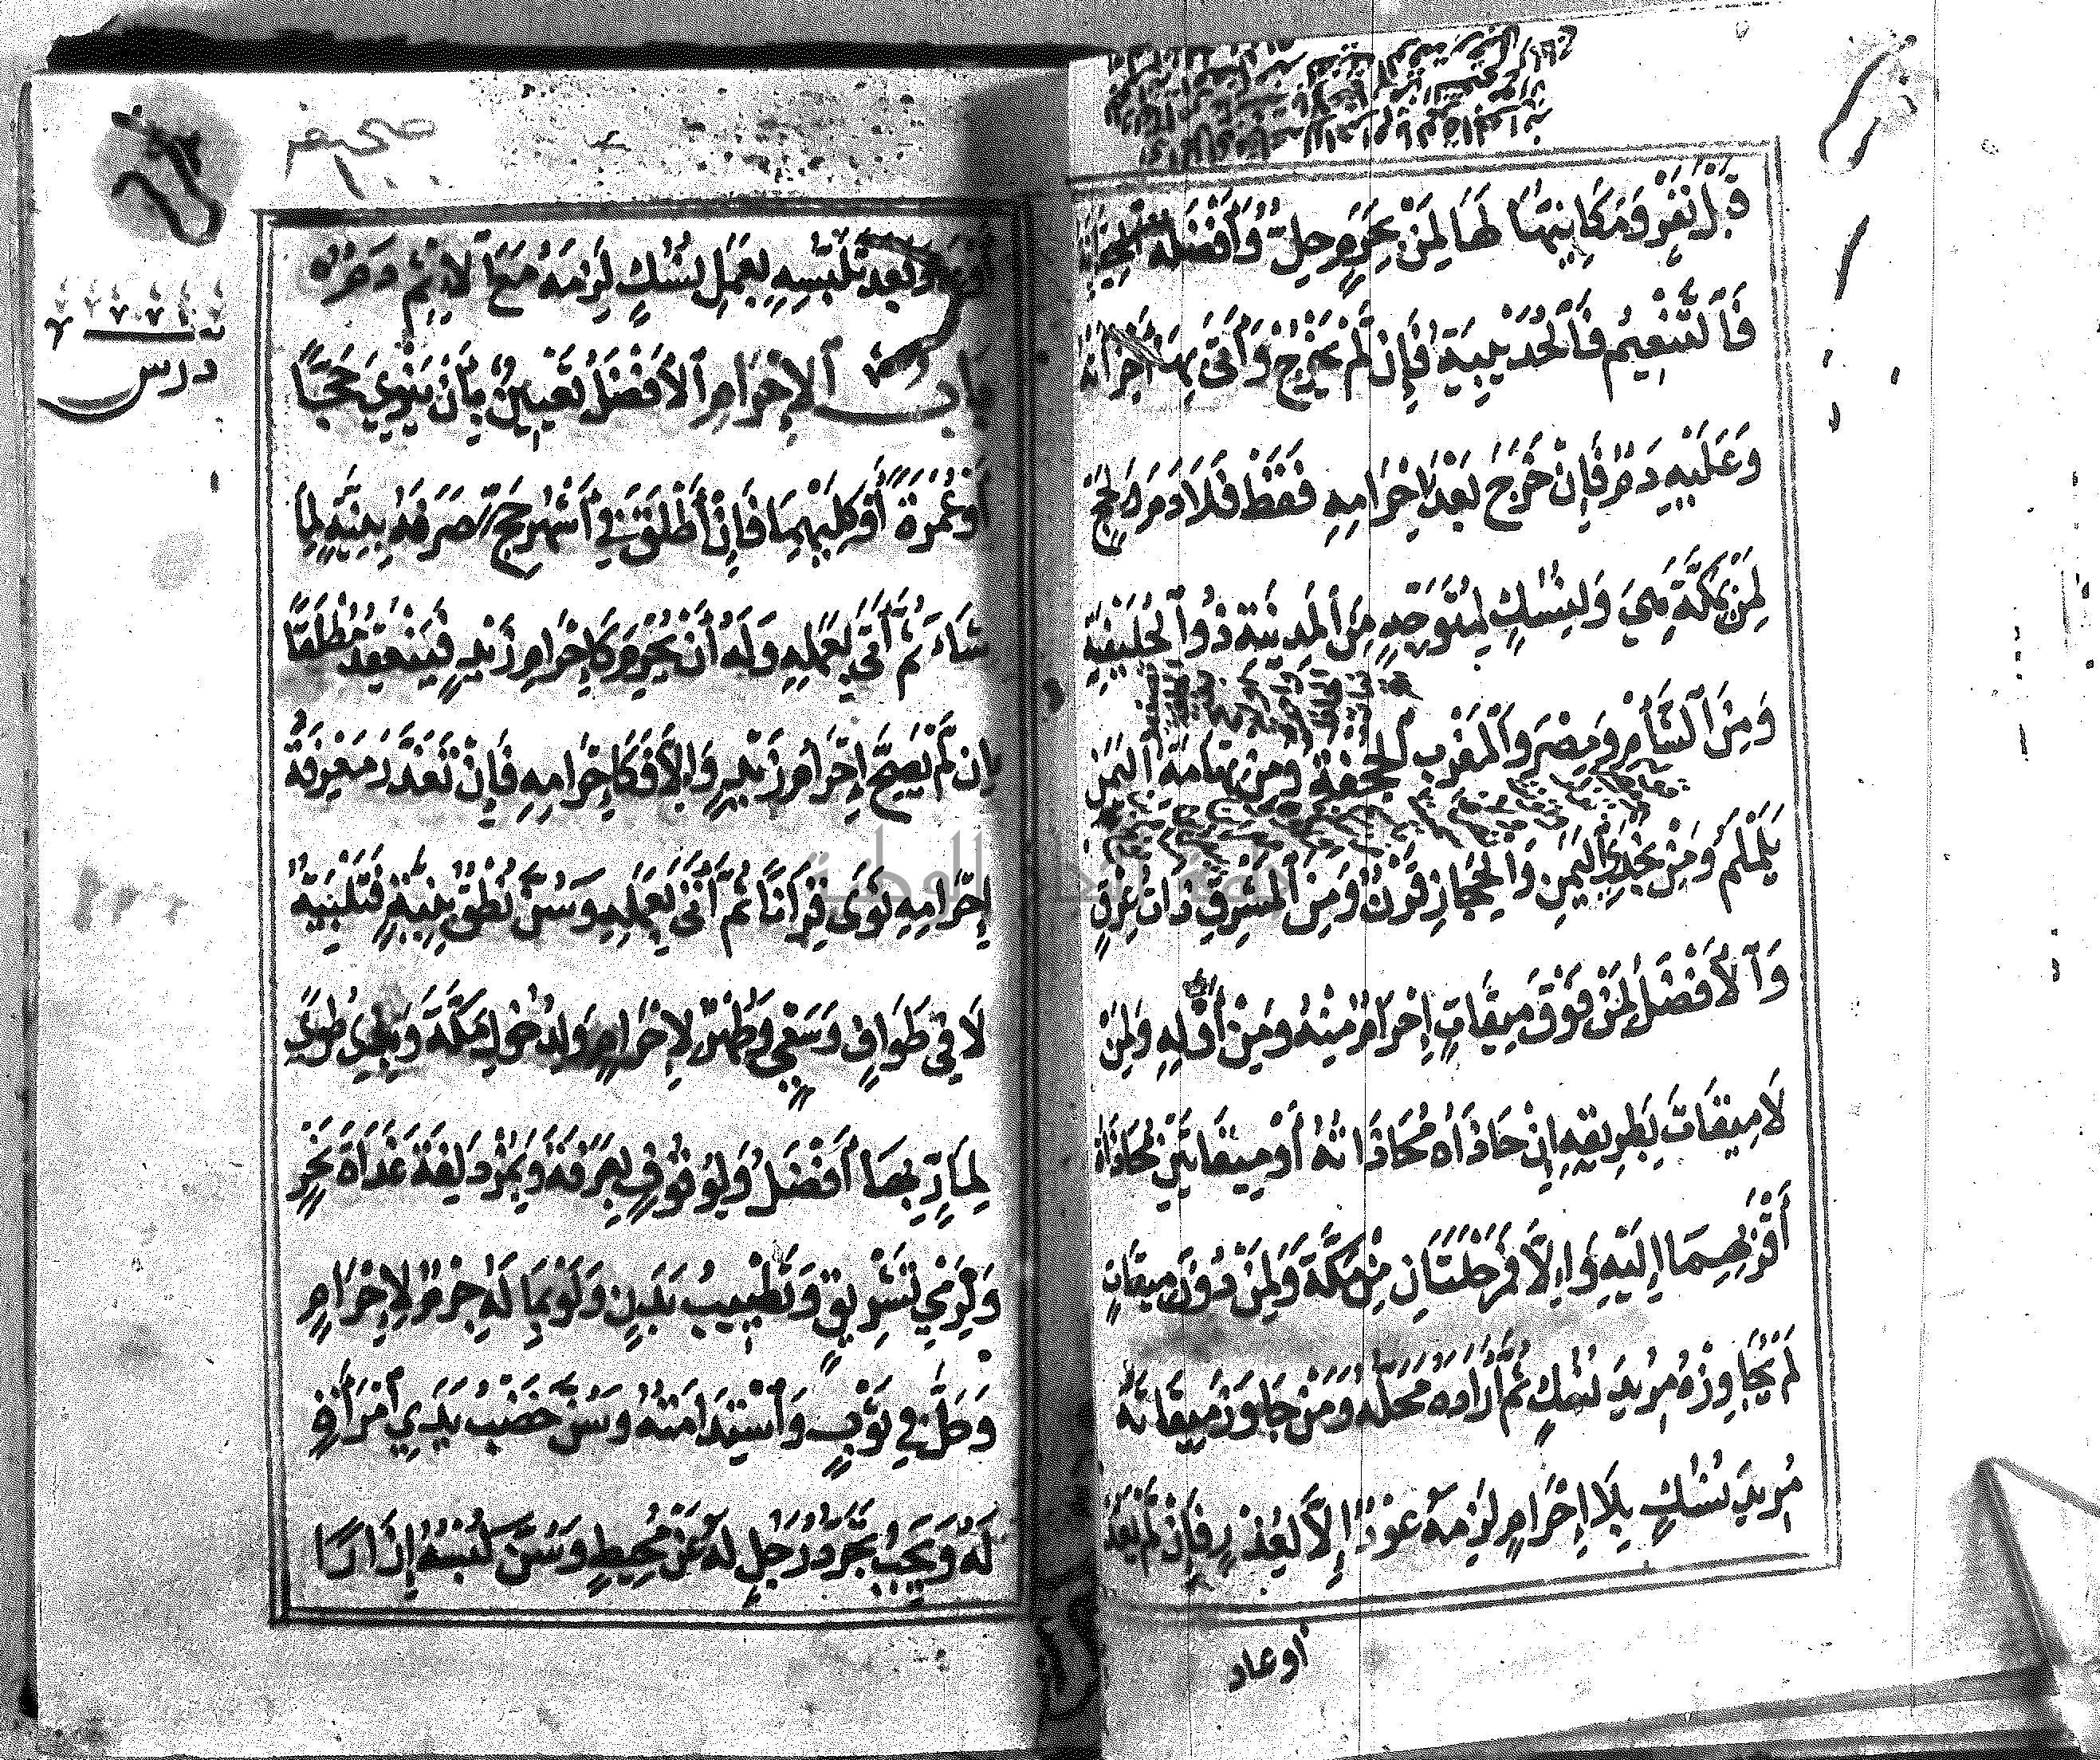 قَبْلَ نَفْرٍ وَمَكَانِيَّتُهَا لَهَا لِمَنْ بِحَرَمٍ حِلٌّ وَأَفْضَلُهُ الْجِعْرَانَةُ
فَالتَّنْعِيمُ فَالْحُدَيْبِيَةُ فَإِنْ لَمْ يَخْرُجْ وَأَتَى بِهَا أَجْزَأَتْهُ
وَعَلَيْهِ دَمٌ فَإِنْ خَرَجَ بَعْدَ إِحْرَامِهِ فَقَطْ فَلَا دَمَ وَلِحَجٍّ
لِمَنْ بِمَكَّةَ هِيَ وَلِنُسُكٍ لِمُتَوَجِّهٍ مِنَ الْمَدِينَةِ ذُو الْحُلَيْفَةِ
وَمِنَ الشَّأْمِ وَمِصْرَ وَالْمَغْرِبِ الْجُحْفَةُ وَمِنْ تِهَامَةِ الْيَمَنِ
يَلَمْلَمُ وَمِنْ نَجْدِ الْيَمَنِ وَالْحِجَازِ قَرْنٌ وَمِنَ الْمَشْرِقِ ذَاتُ عِرْقٍ
وَالْأَفْضَلُ لِمَنْ فَوْقَ مِيقَاتٍ إِحْرَامٌ مِنْهُ وَمِنْ أَوَّلِهِ وَلِمَنْ
لَا مِيقَاتَ بِطَرِيقِهِ إِنْ حَاذَاهُ مُحَاذَاتُهُ أَوْ مِيقَاتَيْنِ مُحَاذَاةُ
أَقْرَبِهِمَا إِلَيْهِ وَإِلَّا فَمَرْحَلَتَانِ مِنْ مَكَّةَ وَلِمَنْ دُونَ مِيقَاتٍ
لَمْ يُجَاوِزْهُ مُرِيدَ نُسُكٍ ثُمَّ أَرَادَهُ مَحَلُّهُ وَمَنْ جَاوَزَ مِيقَاتَهُ
مُرِيدَ نُسُكٍ بِلَا إِحْرَامٍ لَزِمَهُ عَوْدٌ إِلَّا لِعُذْرٍ فَإِنْ لَمْ يَعُدْ
أوعاد
صحيفه
١٠٠
وَبَعْدَ تَلَبُّسِهِ بِعَمَلِ نُسُكٍ لَزِمَهُ مَعَ الْإِثْمِ دَمٌ
بَابُ الْإِحْرَامِ الْأَفْضَلُ تَعْيِينٌ بِأَنْ يَنْوِيَ حَجًّا
أَوْ عُمْرَةً أَوْ كِلَيْهِمَا فَإِنْ أَطْلَقَ فِي أَشْهُرِ حَجٍّ صَرَفَهُ بِنِيَّةٍ لِمَا
شَاءَ ثُمَّ أَتَى بِعَمَلِهِ وَلَهُ أَنْ يُحْرِمَ كَإِحْرَامِ زَيْدٍ فَيَنْعَقِدُ مُطْلَقًا
إِنْ لَمْ يَصِحَّ إِحْرَامُ زَيْدٍ وَإِلَّا فَكَإِحْرَامِهِ فَإِنْ تَعَذَّرَ مَعْرِفَةُ
إِحْرَامِهِ نَوَى قِرَانًا ثُمَّ أَتَى بِعَمَلِهِ وَسُنَّ نُطْقٌ بِنِيَّةٍ فَتَلْبِيَةٌ
لَا فِي طَوَافٍ وَسَعْيٍ وَطُهْرٌ لِإِحْرَامٍ وَلِدُخُولِ مَكَّةَ وَبِذِي طُوًى
لِمَارٍّ بِهَا أَفْضَلُ وَلِوُقُوفٍ بِعَرَفَةَ وَبِمُزْدَلِفَةَ غَدَاةَ نَحْرٍ
وَلِرَمْيِ تَشْرِيقٍ وَتَطْيِيبُ بَدَنٍ وَلَوْ بِمَا لَهُ جِرْمٌ لِإِحْرَامٍ
وَحَلَّ فِي ثَوْبٍ وَاسْتِدَامَتُهُ وَسُنَّ خَضْبُ يَدَيِ امْرَأَةٍ
لَهُ وَيَجِبُ تَجَرُّدُ رَجُلٍ لَهُ عَنْ مُحِيطٍ وَسُنَّ لُبْسُهُ إِزَارًا
درس